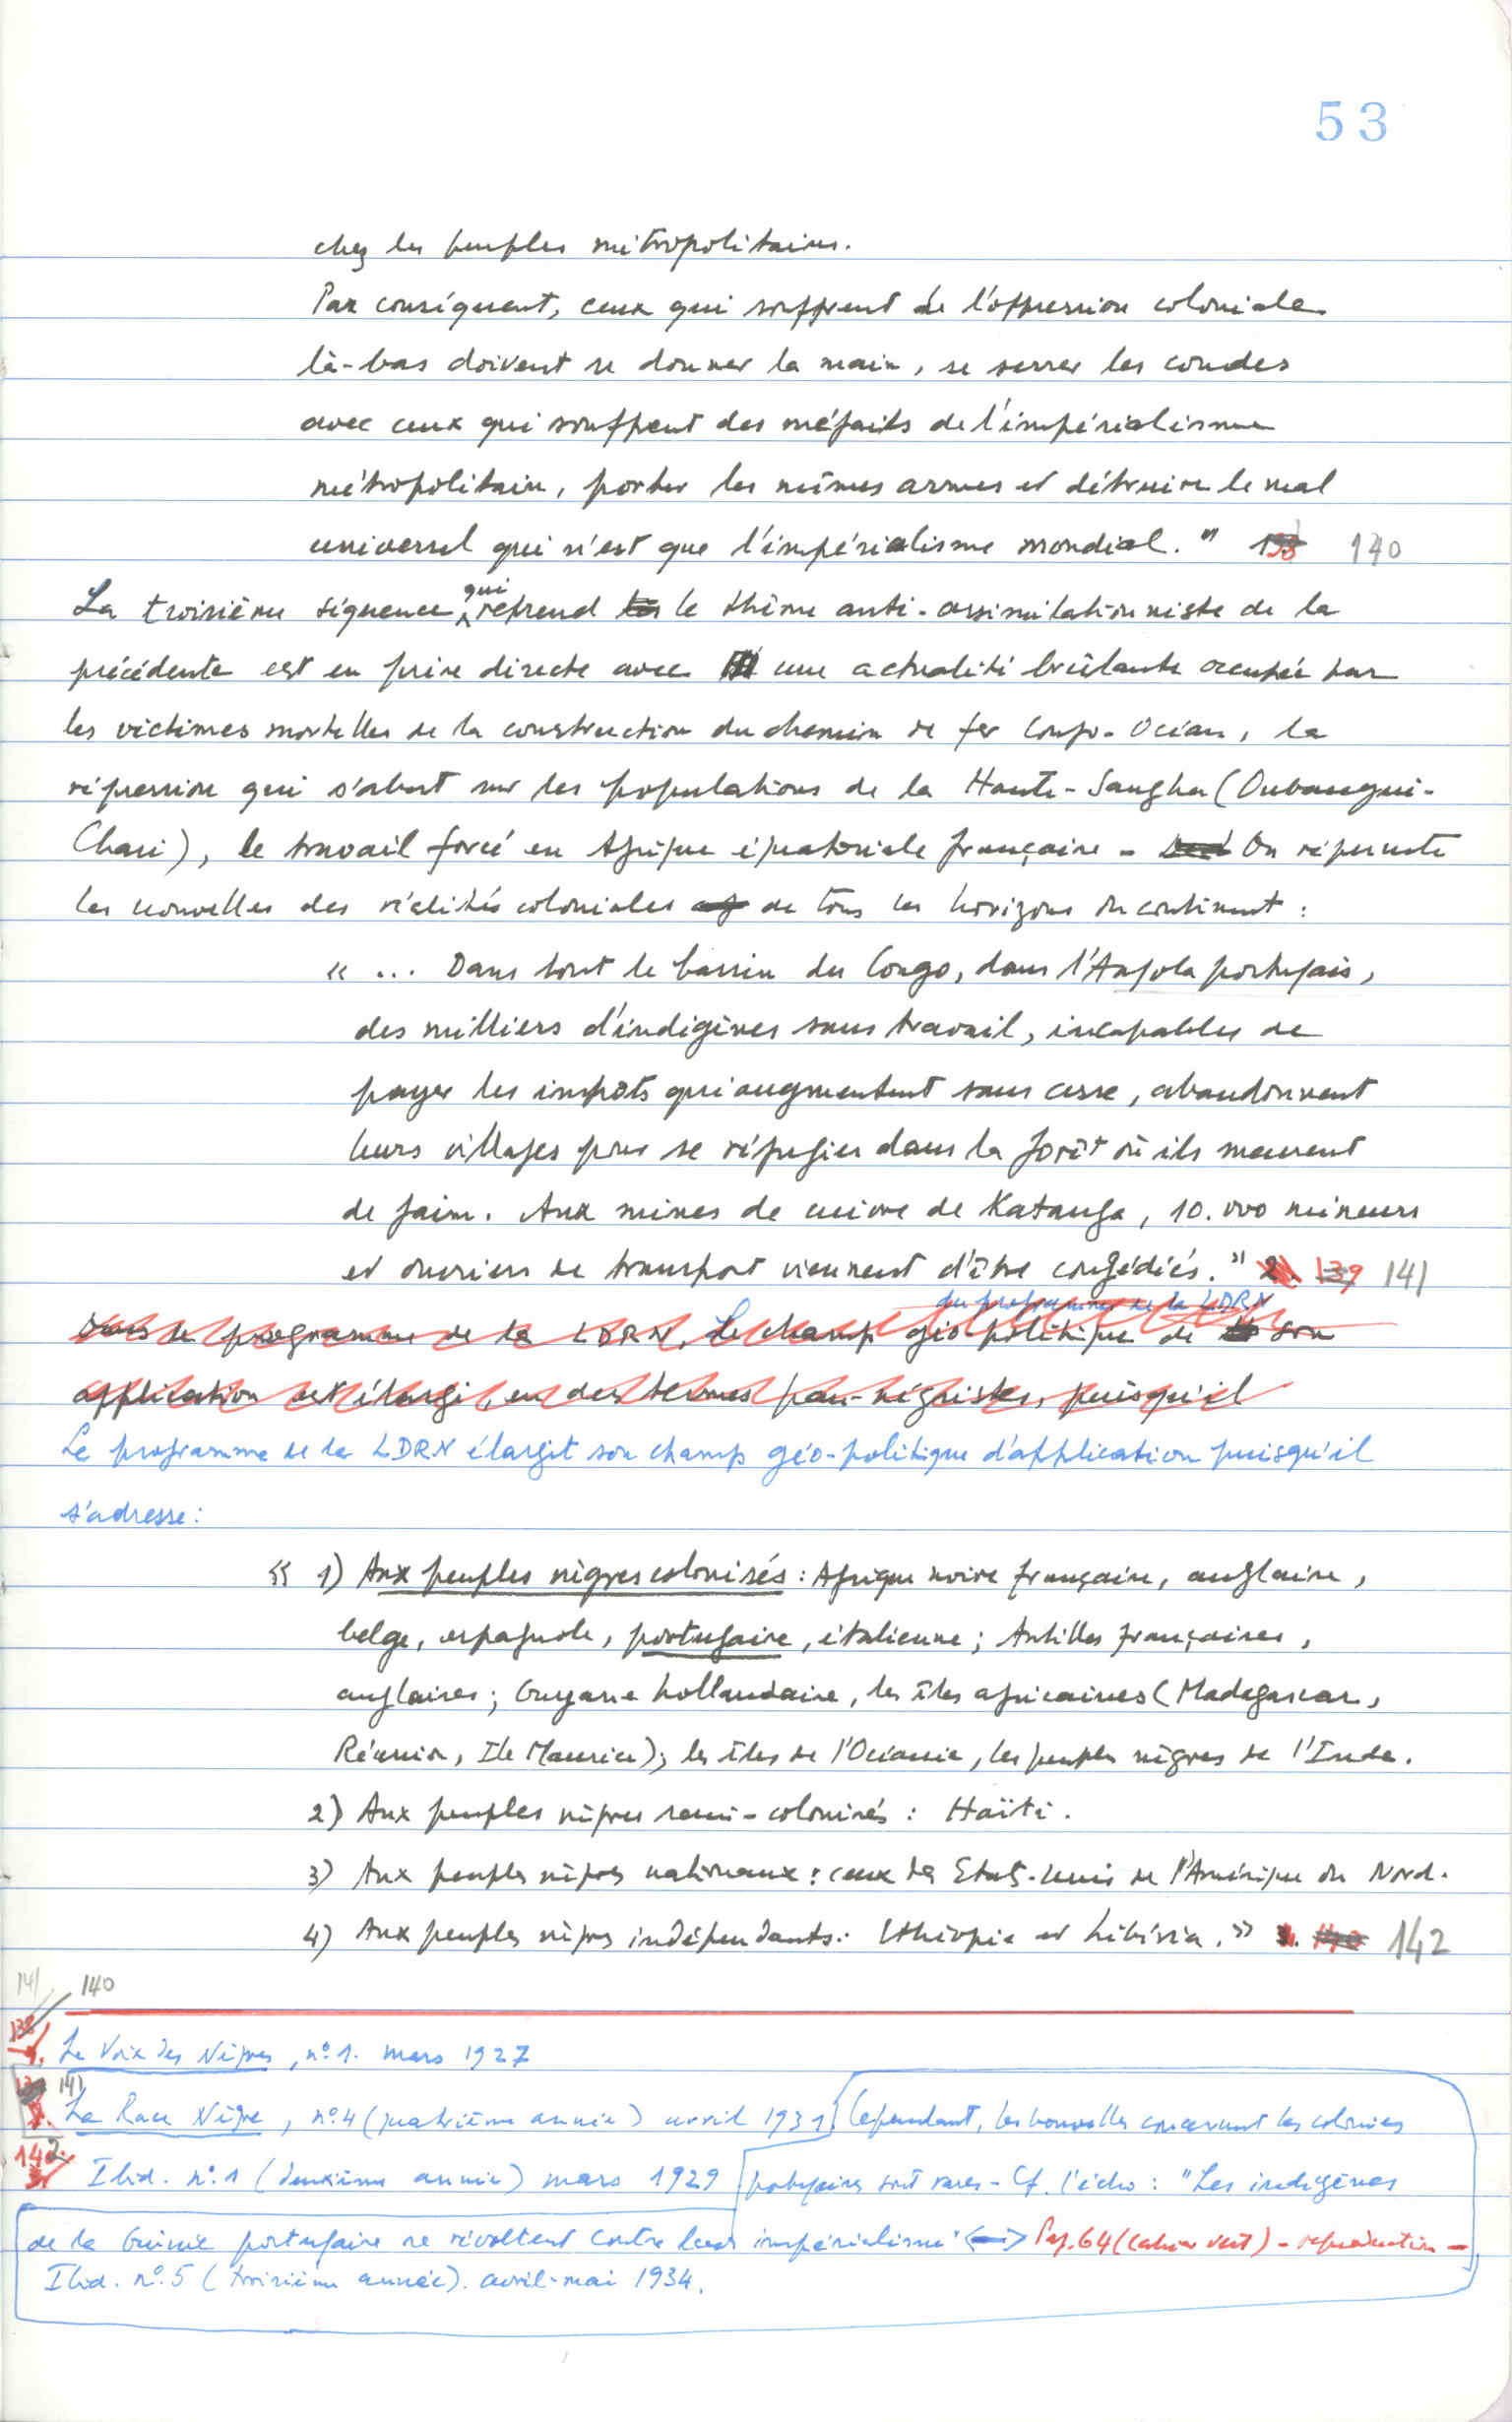 53
chez les peuples métropolitains.
Par conséquent, ceux qui souffrent de l'oppression coloniale
là-bas doivent se donner la main, se serrer les coudes
avec ceux qui souffrent des méfaits de l'impérialisme
métropolitain, porter les mêmes armes et détruire le mal
universel qui n'est que l'impérialisme mondial." 138 140
La troisième séquence qui reprend le thème anti-assimilationniste de la
précédente est en prise directe avec une actualité brûlante occupée par
les victimes mortelles de la construction du chemin de fer Congo-Océan, la
répression qui s'abat sur les populations de la Haute-Sangha (Oubangui-
Chari), le travail forcé en Afrique équatoriale française - On répercute
les nouvelles des réalités coloniales de tous les horizons du continent :
« ... Dans tout le bassin du Congo, dans l'Angola portugais,
des milliers d'indigènes sans travail, incapables de
payer les impôts qui augmentent sans cesse, abandonnent
leurs villages pour se réfugier dans la forêt où ils meurent
de faim. Aux mines de cuivre de Katanga, 10.000 mineurs
et ouvriers de transport viennent d'être congédiés." 2. 139 141
du programme de la LDRN
Dans le programme de la LDRN, Le champ géo politique de son
application est élargi, en des termes pan-négristes, puisqu'il
Le programme de la LDRN élargit son champ géo-politique d'application puisqu'il
s'adresse :
« 1) Aux peuples nègres colonisés : Afrique noire française, anglaise,
belge, espagnole, portugaise, italienne ; Antilles françaises,
anglaises ; Guyane hollandaise, les îles africaines (Madagascar,
Réunion, Ile Maurice) ; les îles de l'Océanie, les peuples nègres de l'Inde.
2) Aux peuples nègres semi-colonisés : Haïti.
3) Aux peuples nègres nationaux : ceux des Etats-Unis de l'Amérique du Nord.
4) Aux peuples nègres indépendants : Ethiopie et Libéria. » 3. 140 142
141 140
138
1. La Voix des Nègres, nº 1. mars 1927
139 141
La Race Nègre, nº 4 (quatrième année) avril 1931. Cependant, les nouvelles concernant les colonies
142 Ibid. nº 1 (deuxième année) mars 1929 portugaises sont rares - Cf. l'écho : "Les indigènes
de la Guinée portugaise se révoltent contre leur impérialisme" Pag. 64 (cahier vert) - reproduction -
Ibid. nº 5 (troisième année). avril-mai 1934.